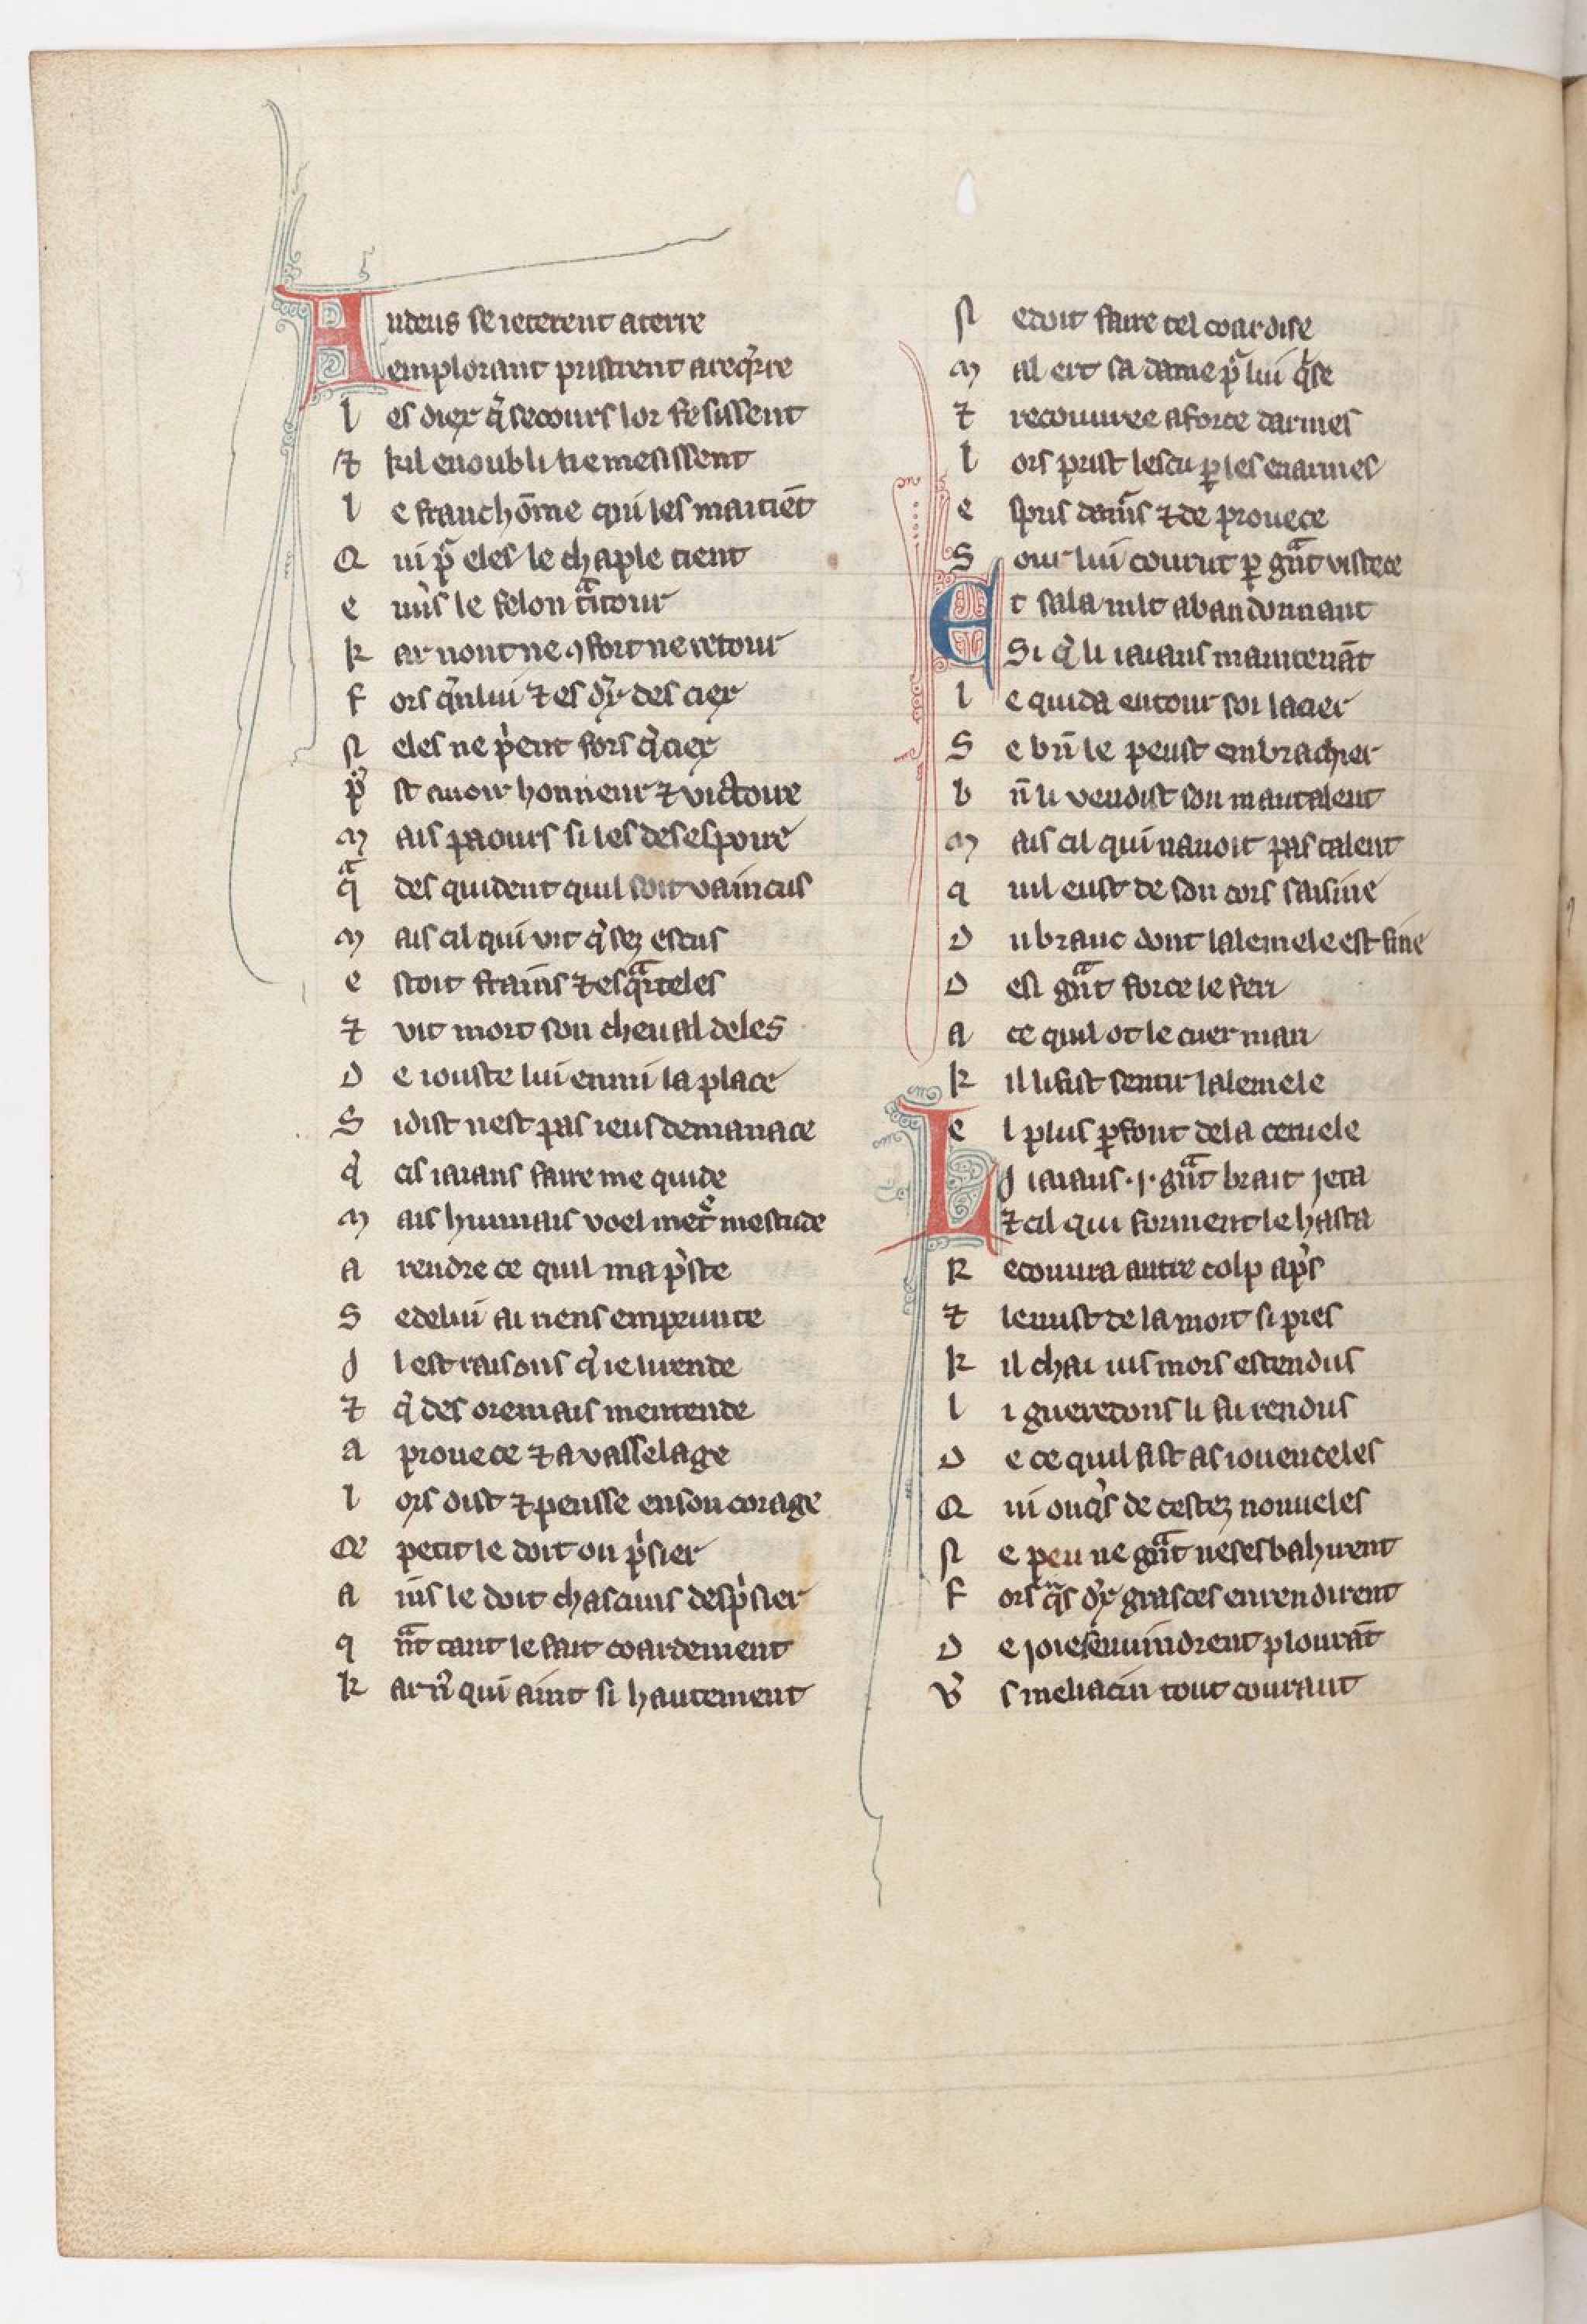 Andeus se ieterent a terre
Em plorant pristrent a reqͥrre
l es diex qͥ secours lor fesissent
⁊ kil en oubli ne mesissent
l e franc hõme qui les maitiẽt
Q ui pͬ eles le chaple tient
e nũs le felon tͣitour
k ar nont ne ꝯfort ne retour
f ors qͥn lui ⁊ es dx̾ des ciex
N eles ne pͥent fors qͥ ciex
pͥ st auoir honneur ⁊ victoire
M ais paours si les desespoire
qͣ des quident quil soit vaincus
M ais cil qui vit qͥ sez escus
e stoit frains ⁊ esqͣrteles
⁊ vit mort son cheual deles
D e iouste lui enmi la place
S i dist nest pas ieus de manace
qͥ cis iaians faire me quide
M ais humais voel metͤ mestude
a rendre ce quil ma pͥste
S e de lui ai riens emprunte
J l est raisons qͥ ie li rende
⁊ qͥ des oremais mentende
a prouece ⁊ a vasselage
l ors dist ⁊ pensse en son corage
Q petit le doit on pͥsier
a ins le doit chascuns despͥsier
q ñͣt tant le fait coardement
k ar nͬ qui aint si hautement
N e doit faire tel coardise
M al ert sa dame pͬ lui qͥse
⁊ recouuree a force darmes
l ors prist lescu ꝑ les enarmes
e spris damͬs ⁊ de prouece
S our lui courut ꝑ gñͣt vistece
Et sala mlt abandonnant
Si qͥ li iaians maintenãt
l e quida entour soi lacier
S e bñ le peust embrachier
b ñ li vendist son mautalent
M ais cil qui nauoit pas talent
q uil eust de son cors saisine
D u branc dont lalemele est fine
D e si gñͣt force le feri
a ce quil ot le cuer mari
k il li fist sentir lalemele
e l plus ꝑfont de la ceruele
Li iaians .j. gñͣt brait jeta
⁊ cil qui forment le hasta
R ecouura autre colp apͥs
⁊ le mist de la mort si pres
k il chai ius mors estendus
l i gueredons li fu rendus
D e ce quil fist as iouenceles
Q ui onqͥs de cestez nouueles
N e peu ne gñͣt ne sesbahirent
f ors qͣns dx̾ grasces en rendirent
D e joie senuindrent plourãt
vͬ s meliacin tout courant